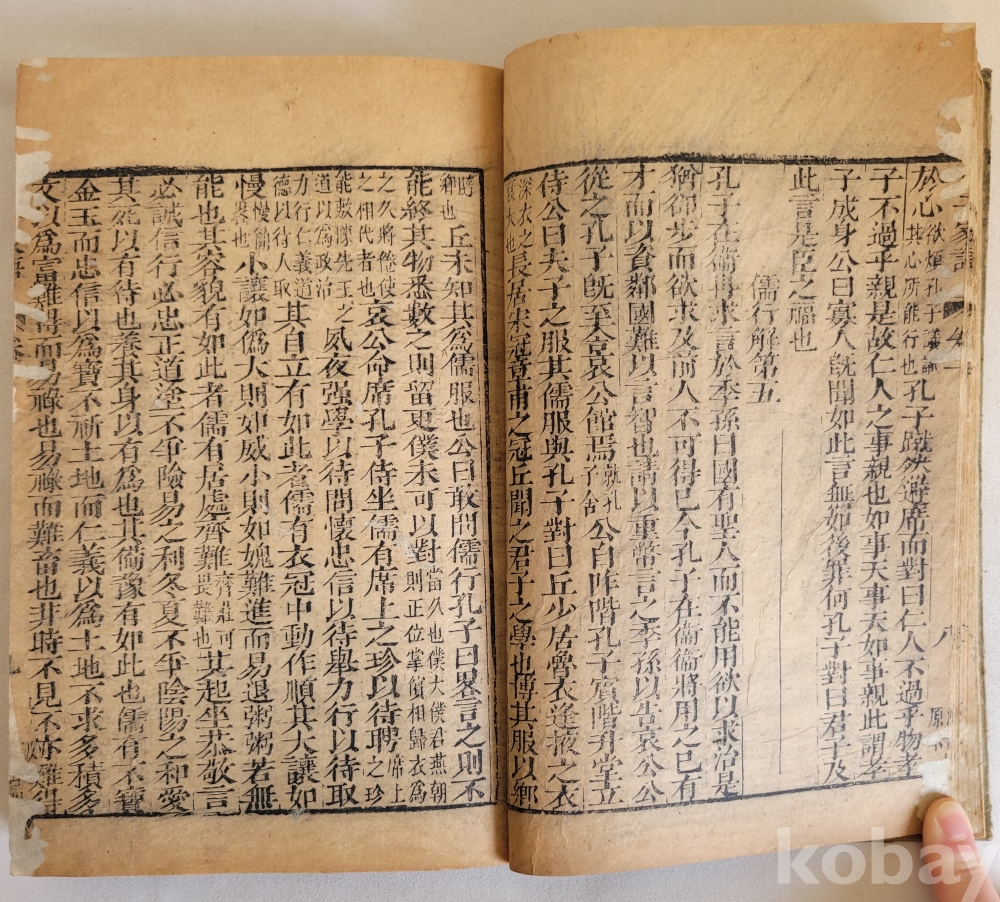 孔子家語 卷一
於心欲煩孔子議識其心所能行也孔子蹴然避席而對曰仁人不過乎物孝
子不過乎親是故仁人之事親也如事天事天如事親此謂孝
子成身公曰寡人既聞如此言無如後罪何孔子對曰君子及
此言是臣之福也
儒行解第五
孔子在衛冉求言於季孫曰國有聖人而不能用欲以求治是
猶卻步而欲求及前人不可得已今孔子在衛衛將用之己有
才而以資鄰國難以言智也請以重幣言之季孫以告哀公公
從之孔子既至舍哀公館焉就孔子舍公自阼階孔子賓階升堂立
侍公曰夫子之服其儒服與孔子對曰丘少居魯衣逢掖之衣
深衣之褒大也長居宋冠章甫之冠丘聞之君子之學也博其服以鄉
隨鄉也丘未知其爲儒服也公曰敢問儒行孔子曰畧言之則不
能終其物悉數之則留更僕未可以對當久也僕大僕君燕朝則正位掌儐相歸衣爲
之久將倦使之相代者也哀公命席孔子侍坐儒有席上之珍以待聘席上之珍
能敷陳先王之道以爲政治夙夜强學以待問懷忠信以待舉力行以待取
力行仁義道德以待人取其自立有如此者儒有衣冠中動作順其大讓如
慢慢簡畏也小讓如僞大則如威小則如媿難進而易退粥粥若無
能也其容貌有如此者儒有居處齊難齊莊可畏難也其起坐恭敬言
必誠信行必忠正道塗不爭險易之利冬夏不爭陰陽之和愛
其死以有待也養其身以有爲也其備豫有如此也儒有不寶
金玉而忠信以爲寶不祈土地而仁義以爲土地不求多積多
文以爲富難得而易祿也易祿而難畜也非時不見不亦難得
kobay